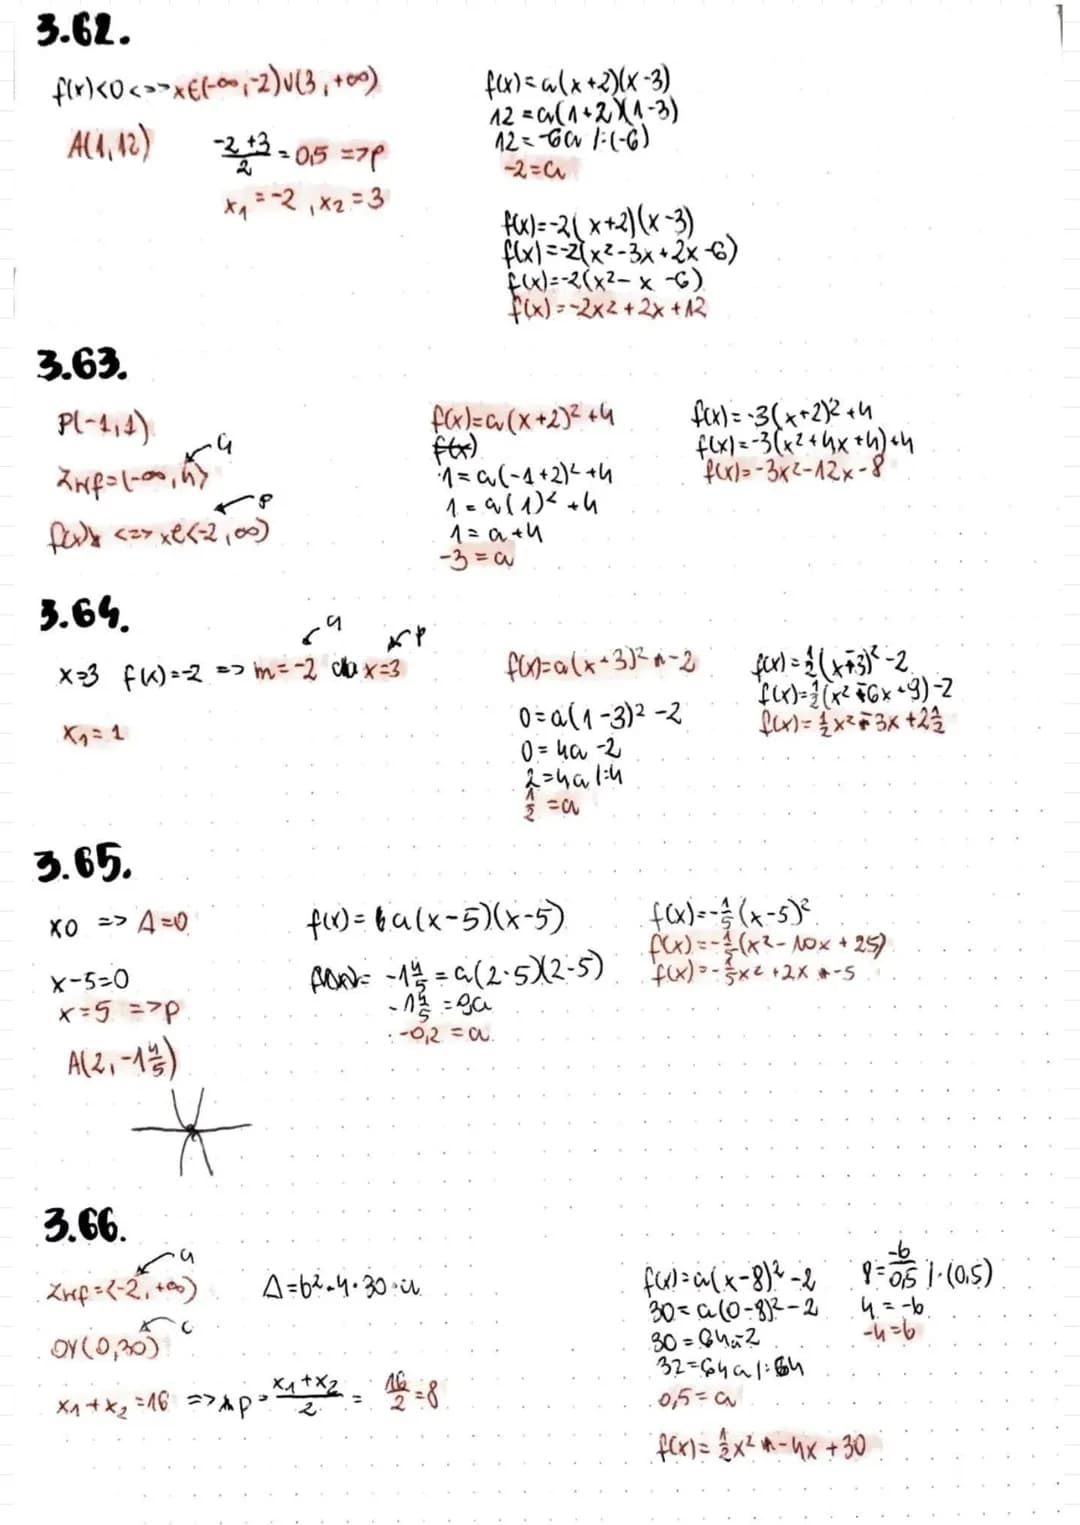 3.62.
f(x)<0 <=> x∈(-∞,-2)∪(3,+∞)
A(1,12)
-2+3/2 = 0,5 => p
x₁=-2, x₂=3
f(x)=a(x+2)(x-3)
12=a(1+2)(1-3)
12=-6a /:(-6)
-2=a
f(x)=-2(x+2)(x-3)
f(x)=-2(x²-3x+2x-6)
f(x)=-2(x²-x-6)
f(x)=-2x²+2x+12
3.63.
P(-1,1)
q
Zwf=(-∞,4>
p
f(x)↘ <=> x∈<-2,∞)
f(x)=a(x+2)²+4
f(x)
1=a(-1+2)²+4
1=a(1)²+4
1=a+4
-3=a
f(x)=-3(x+2)²+4
f(x)=-3(x²+4x+4)+4
f(x)=-3x²-12x-8
3.64.
q p
x=3 f(x)=-2 => m=-2 dla x=3
x₁=1
f(x)=a(x-3)²-2
0=a(1-3)²-2
0=4a-2
2=4a /:4
1/2=a
f(x)=1/2(x-3)²-2
f(x)=1/2(x²-6x+9)-2
f(x)=1/2x²-3x+2 1/2
3.65.
x0 => Δ=0
x-5=0
x=5 => p
A(2,-1 4/5)
f(x)=a(x-5)(x-5)
-1 4/5=a(2-5)(2-5)
-1 4/5=9a
-0,2=a
f(x)=-1/5(x-5)²
f(x)=-1/5(x²-10x+25)
f(x)=-1/5x²+2x-5
3.66.
q
Zwf=<-2,+∞)
c
OY(0,30)
x₁+x₂=16 => p=x₁+x₂/2=16/2=8
Δ=b²-4·30·a
f(x)=a(x-8)²-2
30=a(0-8)²-2
30=64a-2
32=64a /:64
0,5=a
f(x)=1/2x²-4x+30
8=-b/0,5 /·(0,5)
4=-b
-4=b